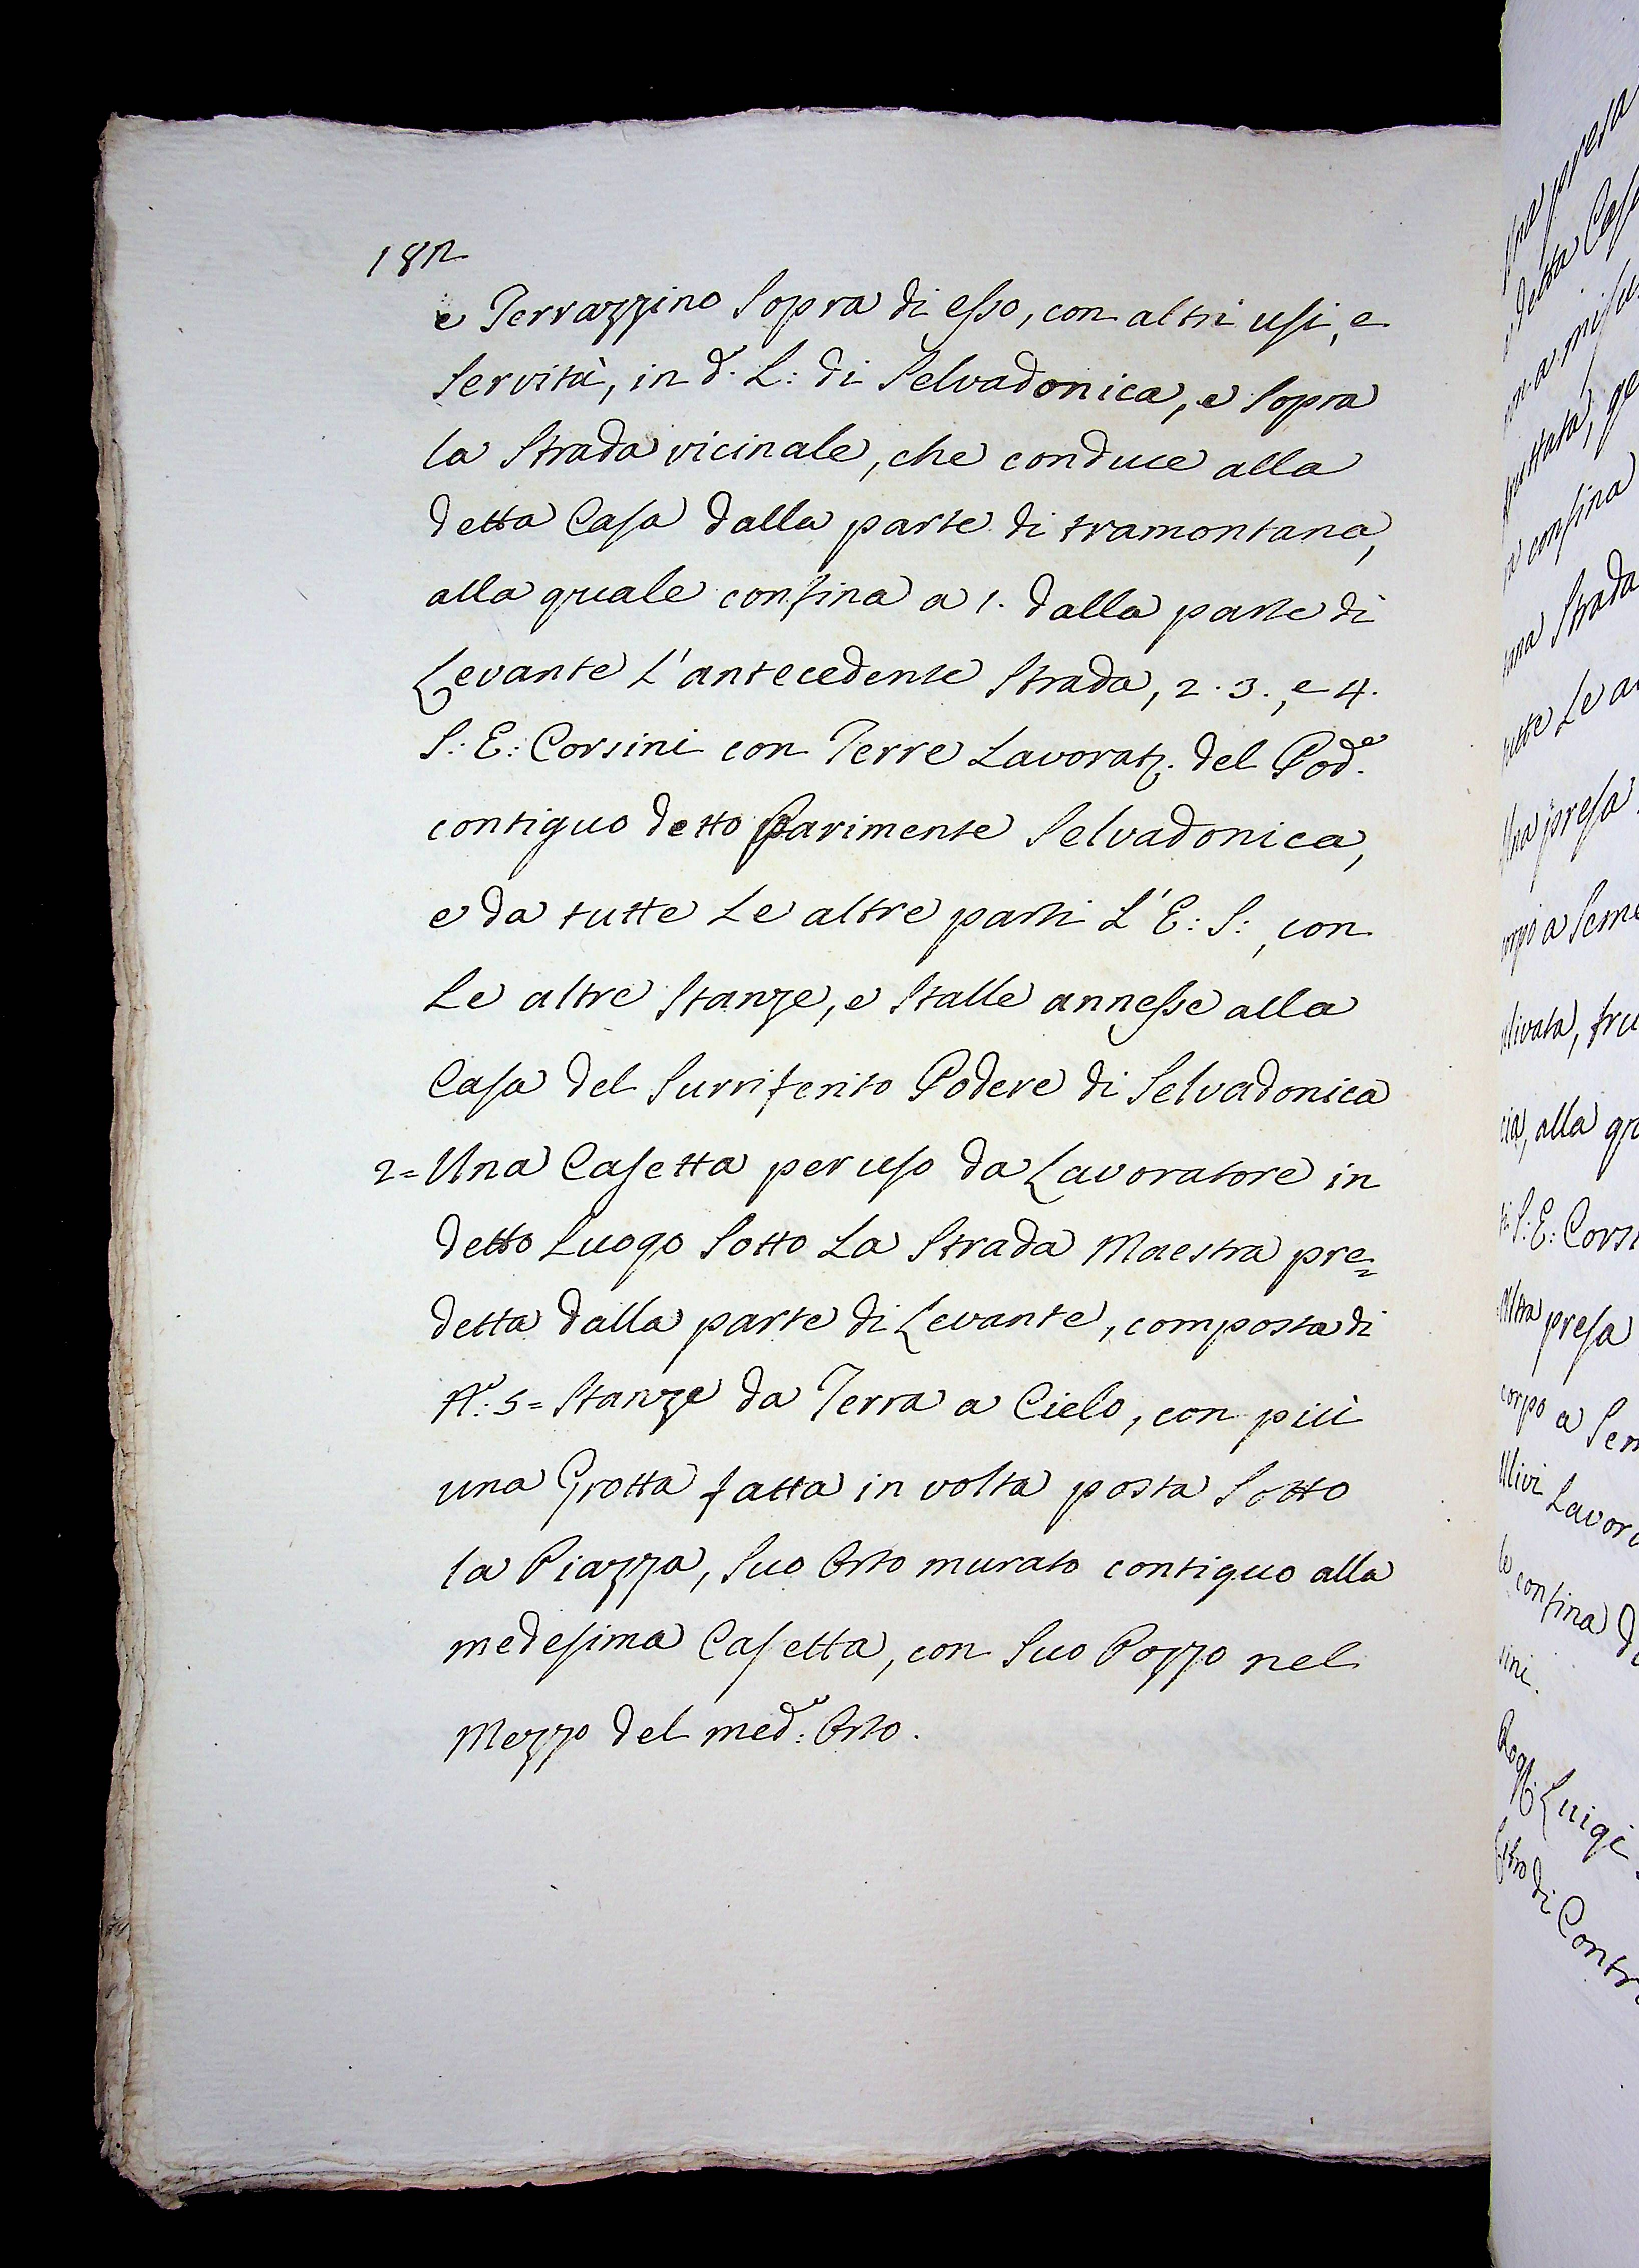 182
e Terrazzino Sopra di esso, con altri usi, e
Servitù, in d.º L: di Selvadonica, e Sopra
la Strada vicinale, che conduce alla
detta Casa dalla parte di tramontana,
alla quale confina a 1. dalla parte di
Levante L'antecedente Strada, 2. 3., e 4.
S: E: Corsini con Terre Lavorat. del Pod.e
contiguo detto parimente Selvadonica,
e da tutte Le altre parti L'E: S:, con
Le altre Stanze, e Stalle annesse alla
Casa del Surriferito Podere di Selvadonica
2= Una Casetta per uso da Lavoratore in
detto Luogo Sotto La Strada Maestra pre=
detta dalla parte di Levante, composta di
N.º: 5= Stanze da Terra a Cielo, con più
una Grotta fatta in volta posta Sotto
la Piazza, Suo Orto murato contiguo alla
medesima Casetta, con Suo Pozzo nel
Mezzo del med.º: Orto.
Una presa
detta Cas
con a misu
fruttata, ge
confina
Strada
tutte Le a
Una presa
corpo a Seme
ulivata, fru
alla qu
S: E: Corsi
Altra presa
corpo a Sem
Ulivi Lavor
confina d
sini.
Rog
Luigi
di Contr